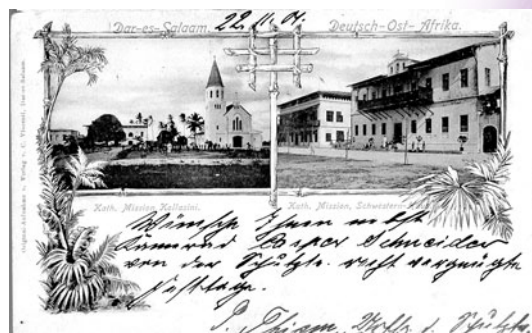 Dar-es-Salaam. 22.11.01. Deutsch-Ost-Afrika.
Original-Aufnahme u. Verlag v. C. Vincenti, Dar-es-Salaam.
Kath. Mission, Kollasini.
Kath. Mission, Schwestern-
Wünsche Ihnen nebst
Kamerad Schneider
von der Schutztr. recht vergnügte
Festtage.